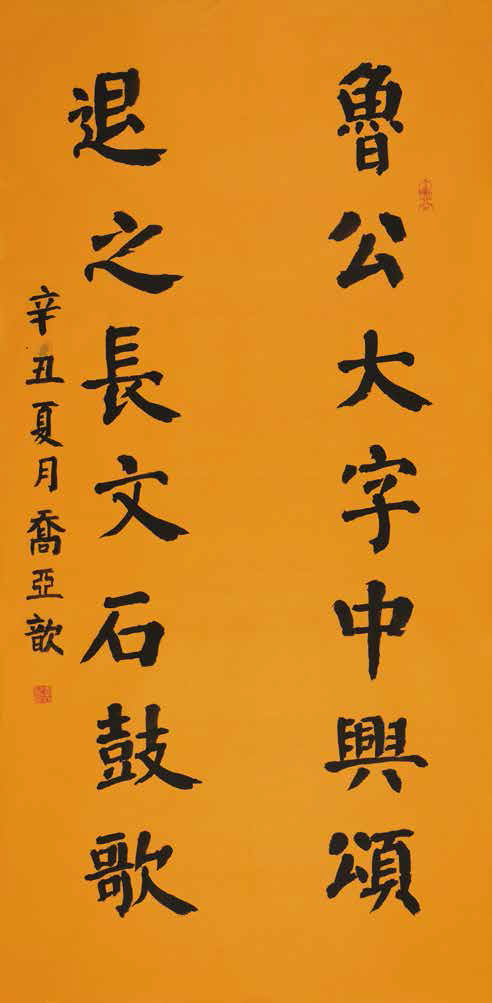 魯公大字中興頌
退之長文石鼓歌
辛丑夏月喬亞歆